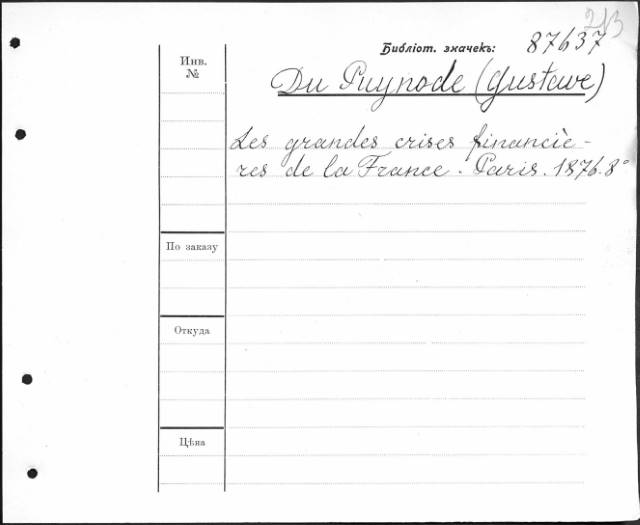 213
Библіот. значекъ: 87637
Инв.
№
Du Puynode (Gustave)
Les grandes crises financiè-
res de la France. Paris. 1876. 8°
По заказу
Откуда
Цѣна